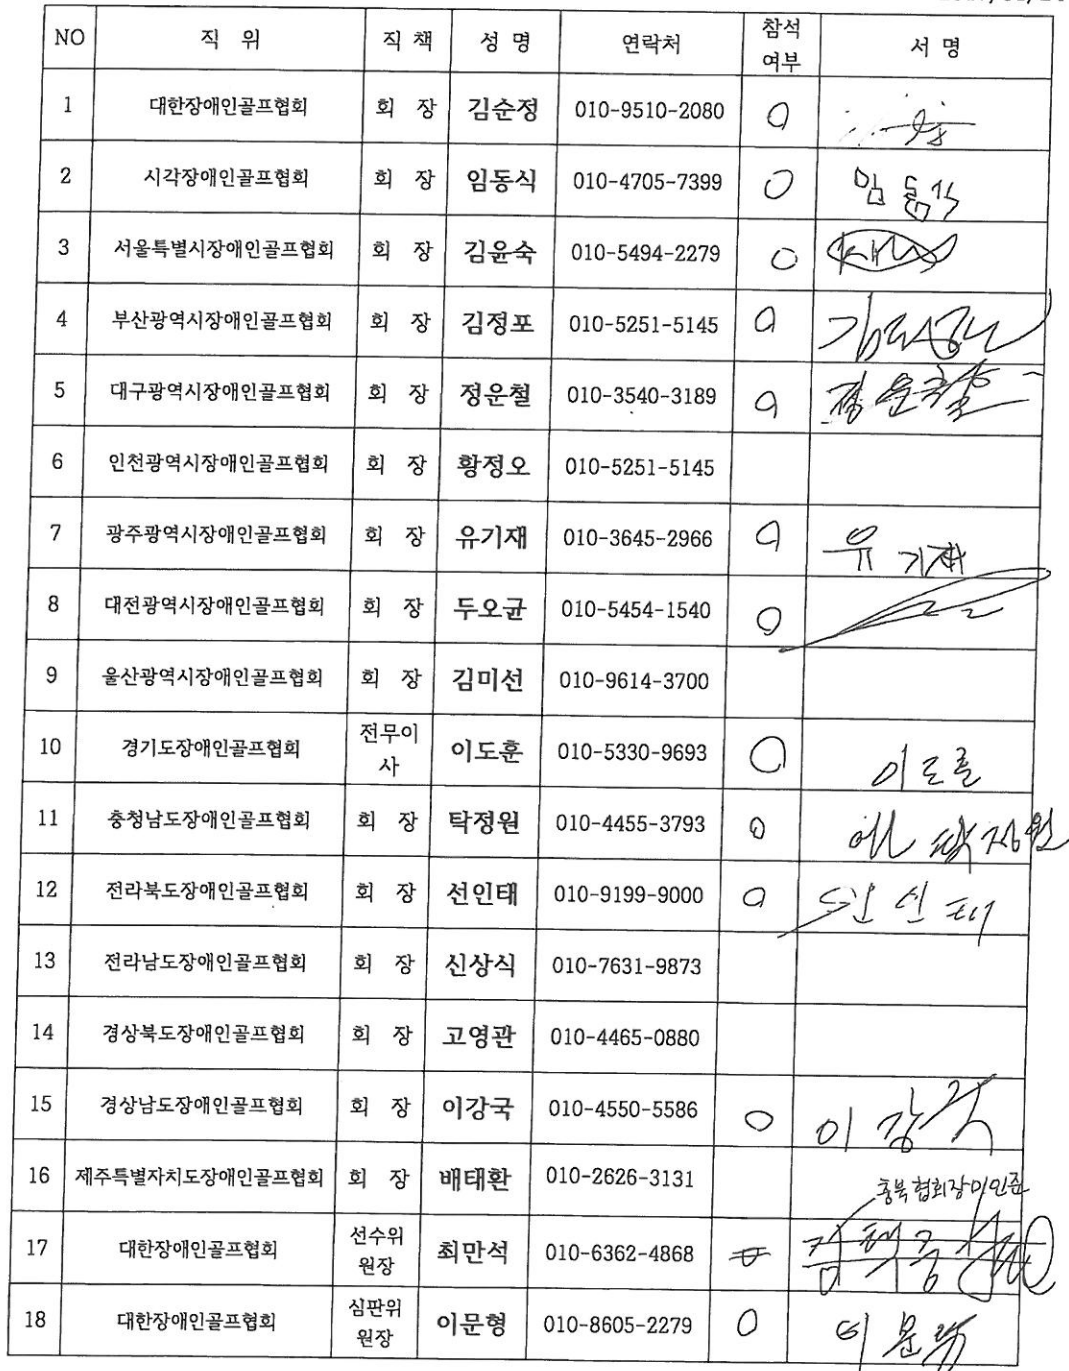 NO 직 위 직 책 성 명 연락처 참석여부 서 명
1 대한장애인골프협회 회 장 김순정 010-9510-2080 O
2 시각장애인골프협회 회 장 임동식 010-4705-7399 O 임동식
3 서울특별시장애인골프협회 회 장 김윤숙 010-5494-2279 O
4 부산광역시장애인골프협회 회 장 김정포 010-5251-5145 O
5 대구광역시장애인골프협회 회 장 정운철 010-3540-3189 O 정운철
6 인천광역시장애인골프협회 회 장 황정오 010-5251-5145
7 광주광역시장애인골프협회 회 장 유기재 010-3645-2966 O 유기재
8 대전광역시장애인골프협회 회 장 두오균 010-5454-1540 O
9 울산광역시장애인골프협회 회 장 김미선 010-9614-3700
10 경기도장애인골프협회 전무이사 이도훈 010-5330-9693 O 이도훈
11 충청남도장애인골프협회 회 장 탁정원 010-4455-3793 O 탁정원
12 전라북도장애인골프협회 회 장 선인태 010-9199-9000 O 선인태
13 전라남도장애인골프협회 회 장 신상식 010-7631-9873
14 경상북도장애인골프협회 회 장 고영관 010-4465-0880
15 경상남도장애인골프협회 회 장 이강국 010-4550-5586 O 이강국
16 제주특별자치도장애인골프협회 회 장 배태환 010-2626-3131
충북협회장미인준
17 대한장애인골프협회 선수위원장 최만석 010-6362-4868
18 대한장애인골프협회 심판위원장 이문형 010-8605-2279 O 이문형